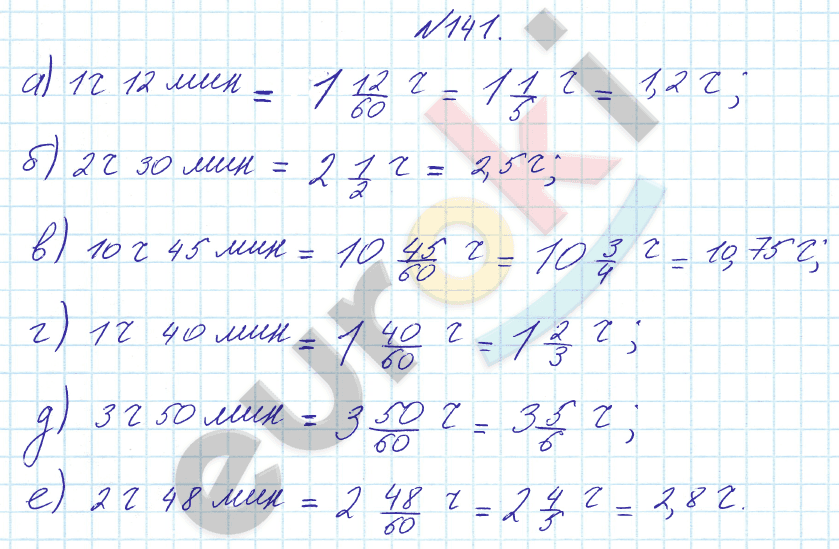 №141.
а) 1ч 12 мин = 1 12/60 ч = 1 1/5 ч = 1,2 ч;
б) 2ч 30 мин = 2 1/2 ч = 2,5ч;
в) 10ч 45 мин = 10 45/60 ч = 10 3/4 ч = 10,75ч;
г) 1ч 40 мин = 1 40/60 ч = 1 2/3 ч;
д) 3ч 50 мин = 3 50/60 ч = 3 5/6 ч;
е) 2ч 48 мин = 2 48/60 ч = 2 4/5 ч = 2,8ч.
euroki